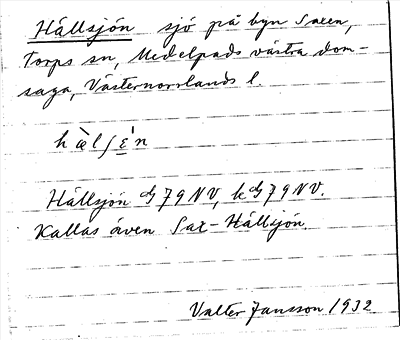 Hällsjön sjö på byn Saxen,
Torps sn, Medelpads västra dom-
saga, Västernorrlands l.
hæ̀lʃɛ̣́n
Hällsjön dg 79 NV, k dg 79 NV.
Kallas även Sax-Hällsjön.
Valter Jansson 1932